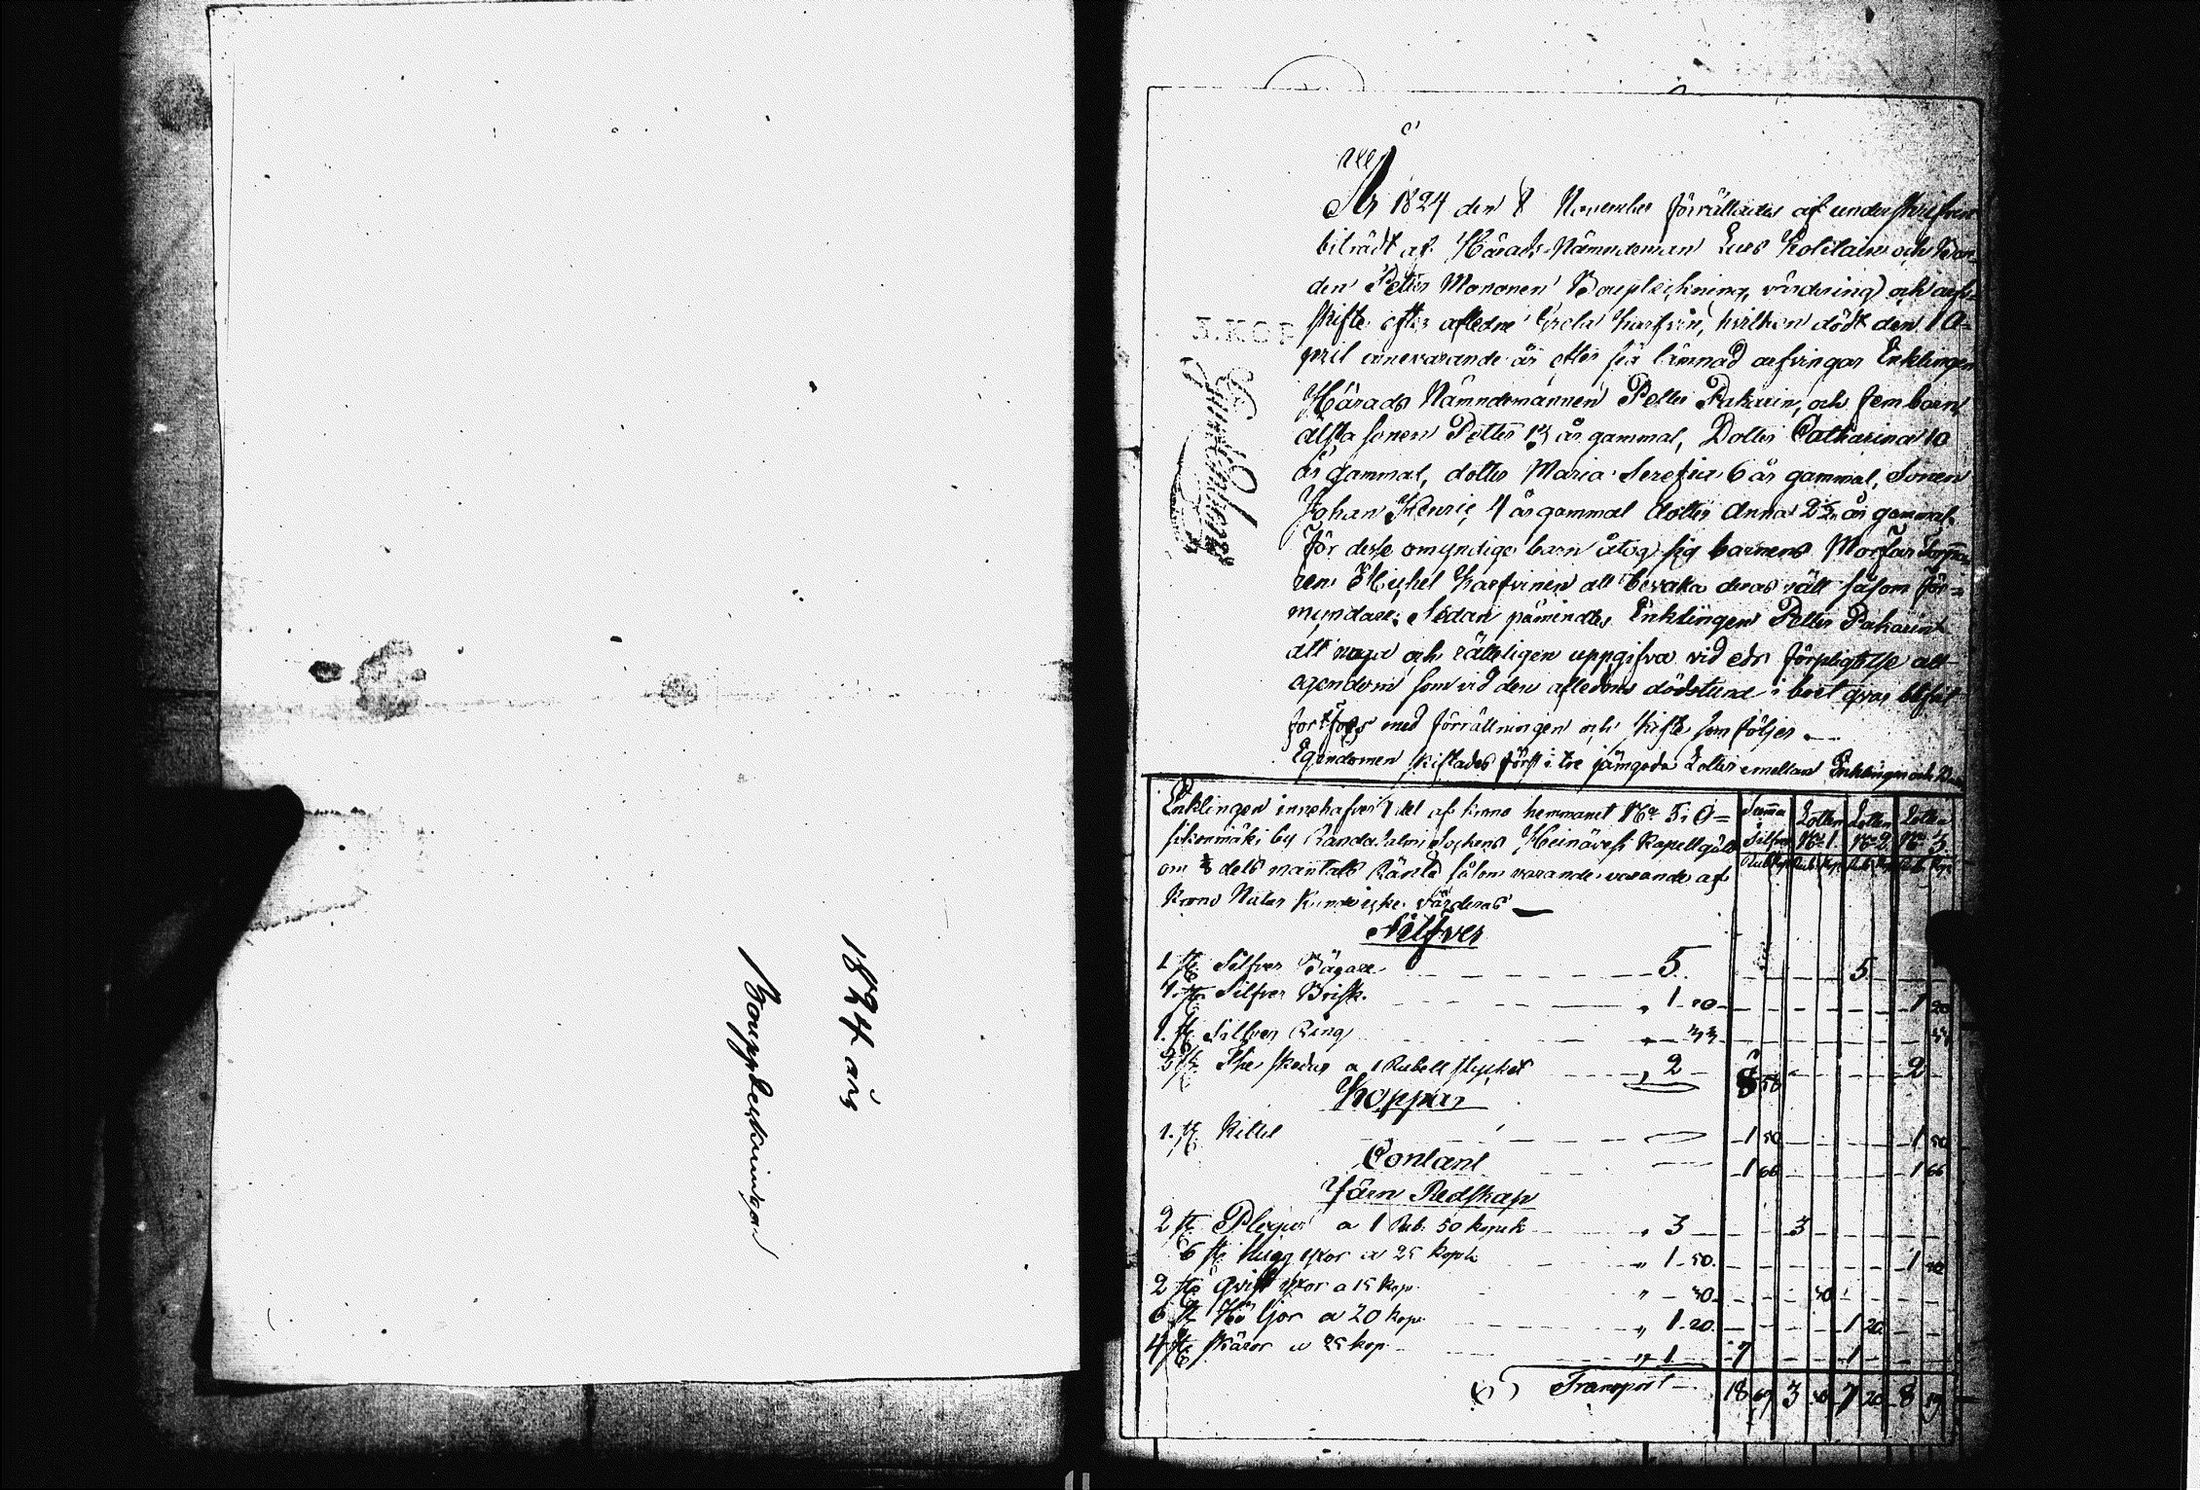 1824 års
Bouppteckningar
År 1824 den 8 November förrättades af underskrifven
biträdt af Härads Nämndeman Lars Kolilain och Bon-
den Petter Mononen Bouppteckning, värdering och arf-
skifte efter afledne Greta Karfvin, hvilken dödt den 1 A-
pril innevarande år efter sig lämnad arfvingar Enklingen
5.KOP
Härads Nämndemannen Petter Pakarin, och fem barn,
älsta sonen Petter 13 år gammal, Dotter Catharina 10
år gammal, dotter Maria Serefia 6 år gammal, Sonen
Johan Henric 4 år gammal dotter Anna 2½ år gammal.
För desse omyndige barn åtog sig barnens Morfar
Michel Karfvinen att bevaka deras rätt såsom för=
myndare; Sedan påmindes Enklingen Petter Pakarin
att noga och rätteligen uppgifva vid eds förpligtelse all
egendom som vid den aflednes dödstund i boet qvar blifvit
fortfors med förrättningen och skifte som följer
Egendomen skiftades först i tre jämgoda Lotter emellan Enklingen och
Enklingen innehafver 1 del af krono hemmanet No 5 i O=
sikonmäki by Randasalmi Sockens Heinävesi Kapellgäld
om dels mantals Ränta såsom varande varande af
Krono Natur kunde icke värderas
Summa Silfver Lotten No 1. Lotten No 2 Lotten No 3
Silfver
1 st Silfver Bägare 5. 5
1. st Silfver Brisk. 1 20 1 20
1. st Silfver Ring 33 33
2 st The skedar a 1 Rubell stycket 2 8 53 2
Koppar
1. st Kittel 1 50 1 50
Contant 1 66 1 66
Järn Redskap
2 st Plogar a 1 Rub. 50 kopek 3 3
6 st hugg yxor a 25 kopek 1 50 1 50
2 st qvist yxor a 15 kop 30 30
6 st Hö ljor a 20 kop 1 20 1 20
4 st skäror a 25 kop 1 7 1
Transport 18 69 3 30 7 20 8 19